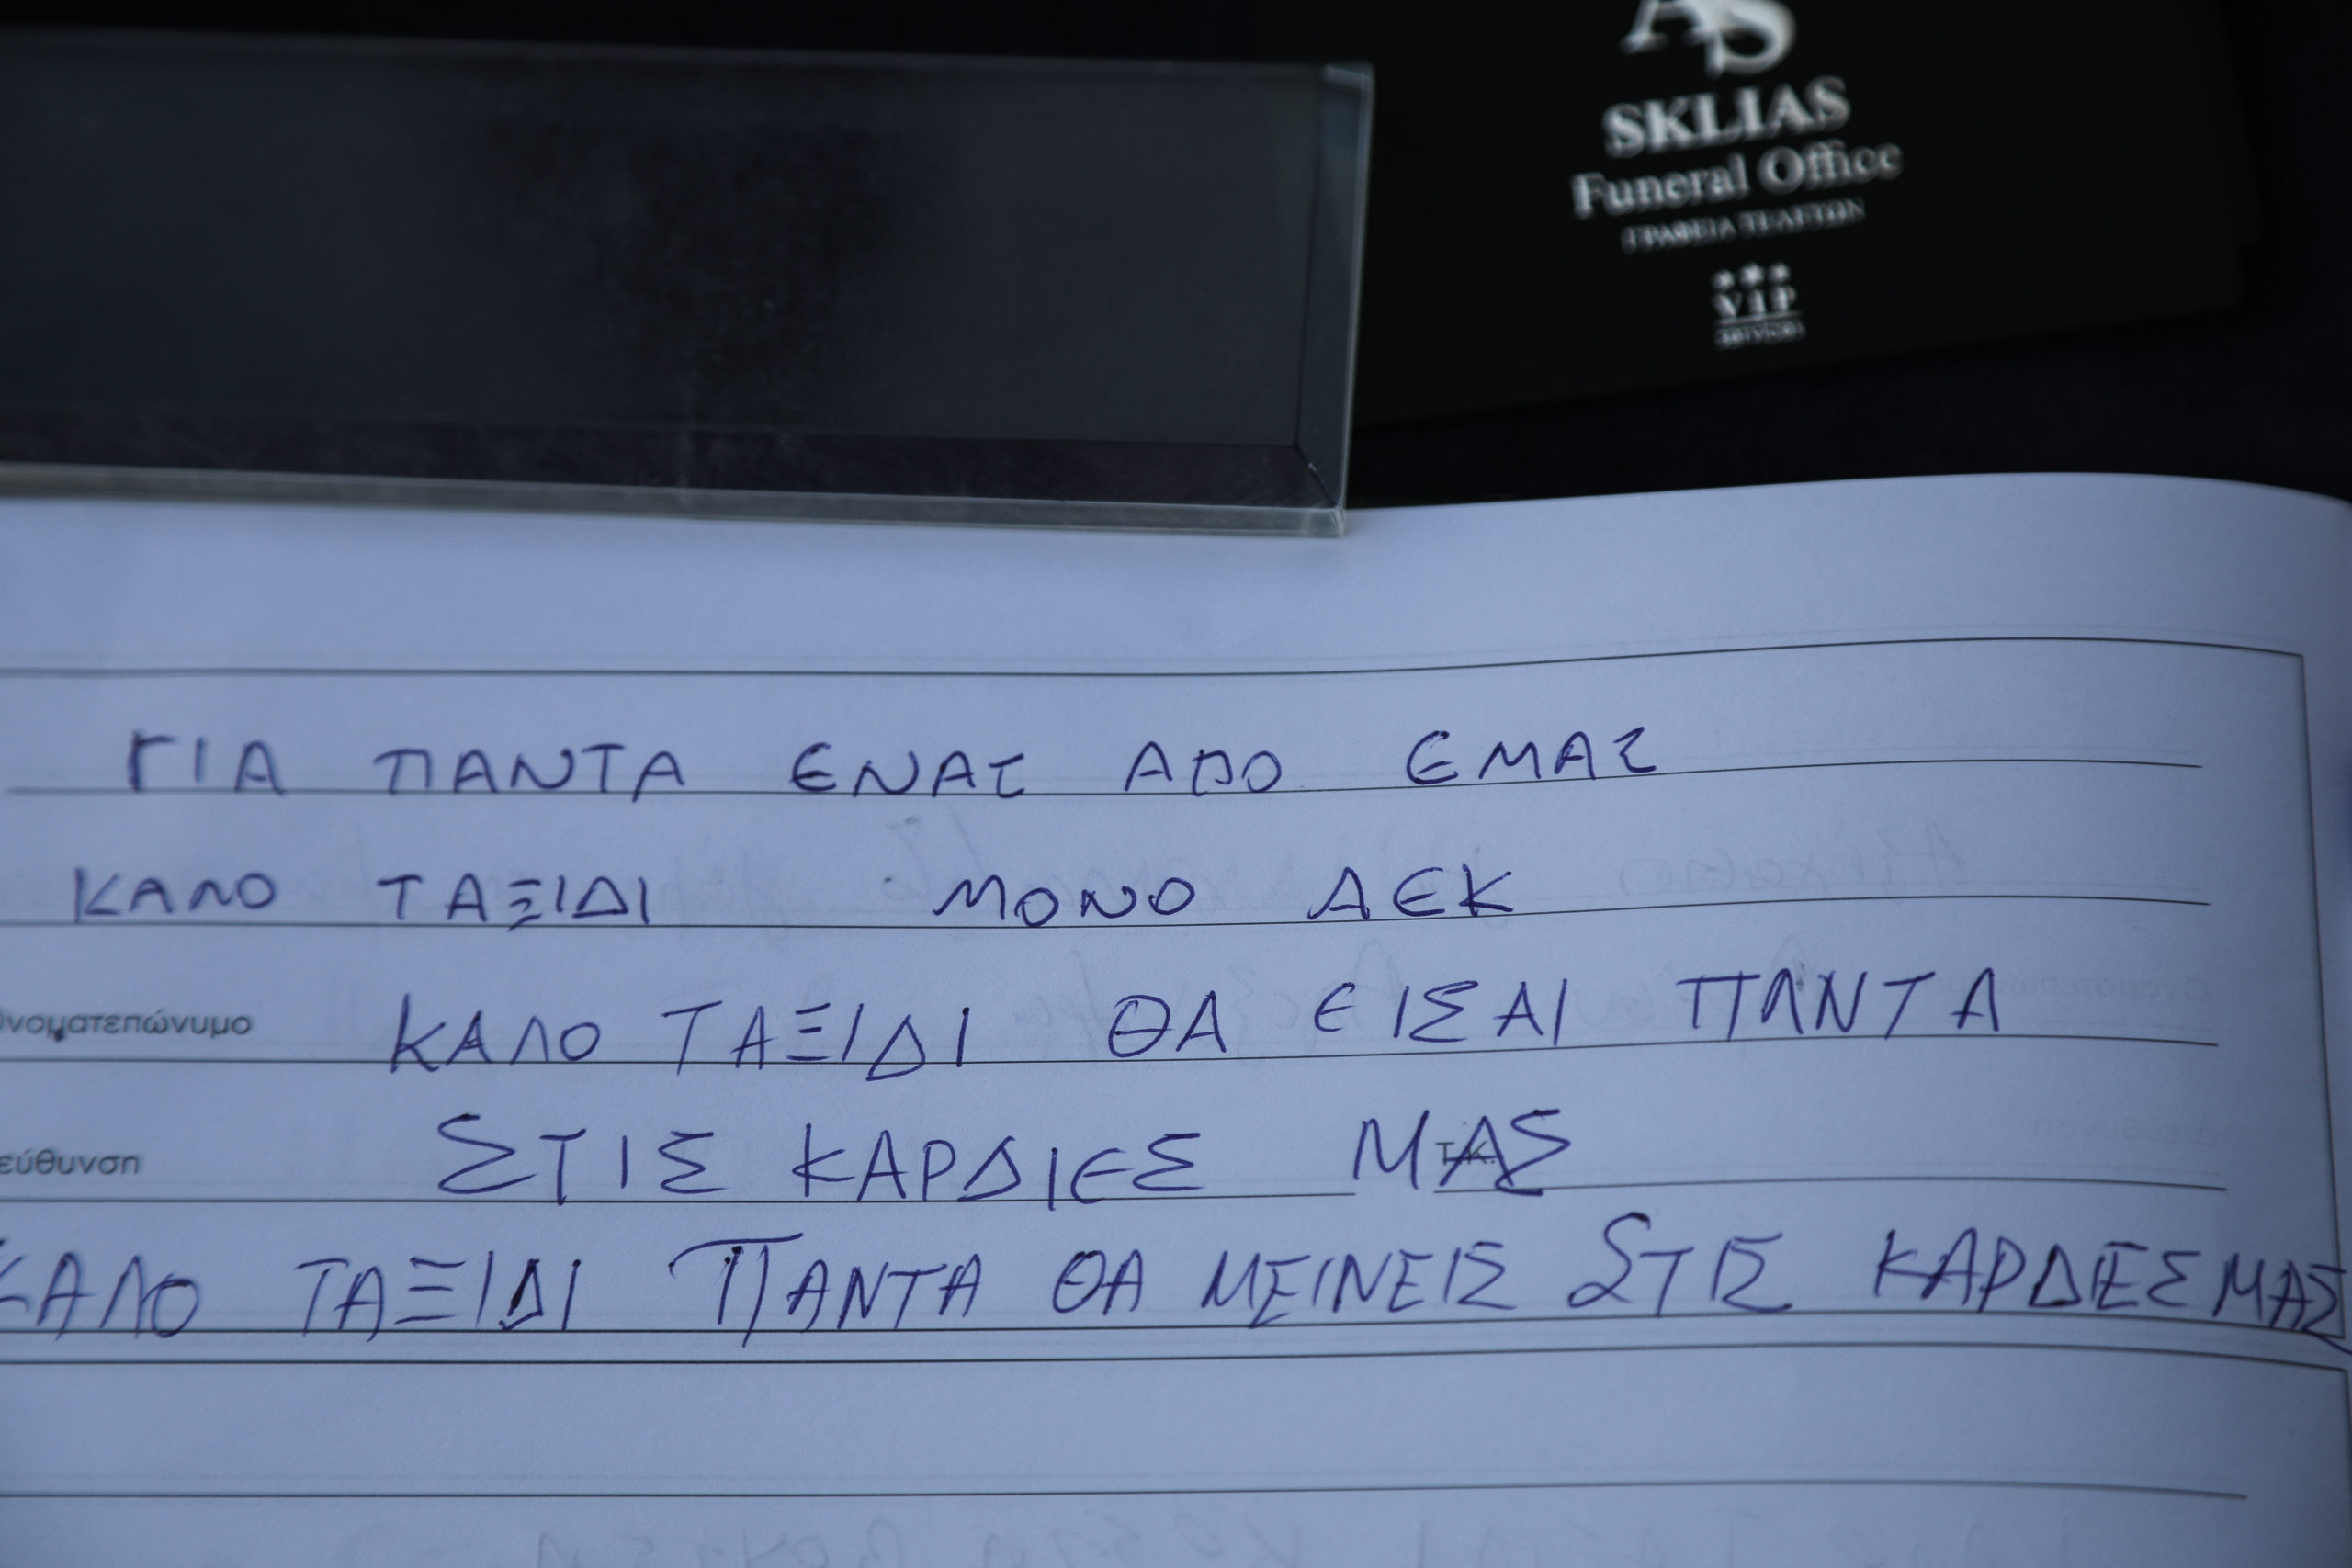 AS
SKLIAS
Funeral Office
ΓΡΑΦΕΙΑ ΤΕΛΕΤΩΝ
VIP
services
ΓΙΑ ΠΑΝΤΑ ΕΝΑΣ ΑΠΟ ΕΜΑΣ
ΚΑΛΟ ΤΑΞΙΔΙ ΜΟΝΟ ΑΕΚ
Ονοματεπώνυμο ΚΑΛΟ ΤΑΞΙΔΙ ΘΑ ΕΙΣΑΙ ΠΑΝΤΑ
εύθυνση ΣΤΙΣ ΚΑΡΔΙΕΣ Τ.Κ. ΜΑΣ
ΚΑΛΟ ΤΑΞΙΔΙ ΠΑΝΤΑ ΘΑ ΜΕΙΝΕΙΣ ΣΤΙΣ ΚΑΡΔΕΣ ΜΑΣ